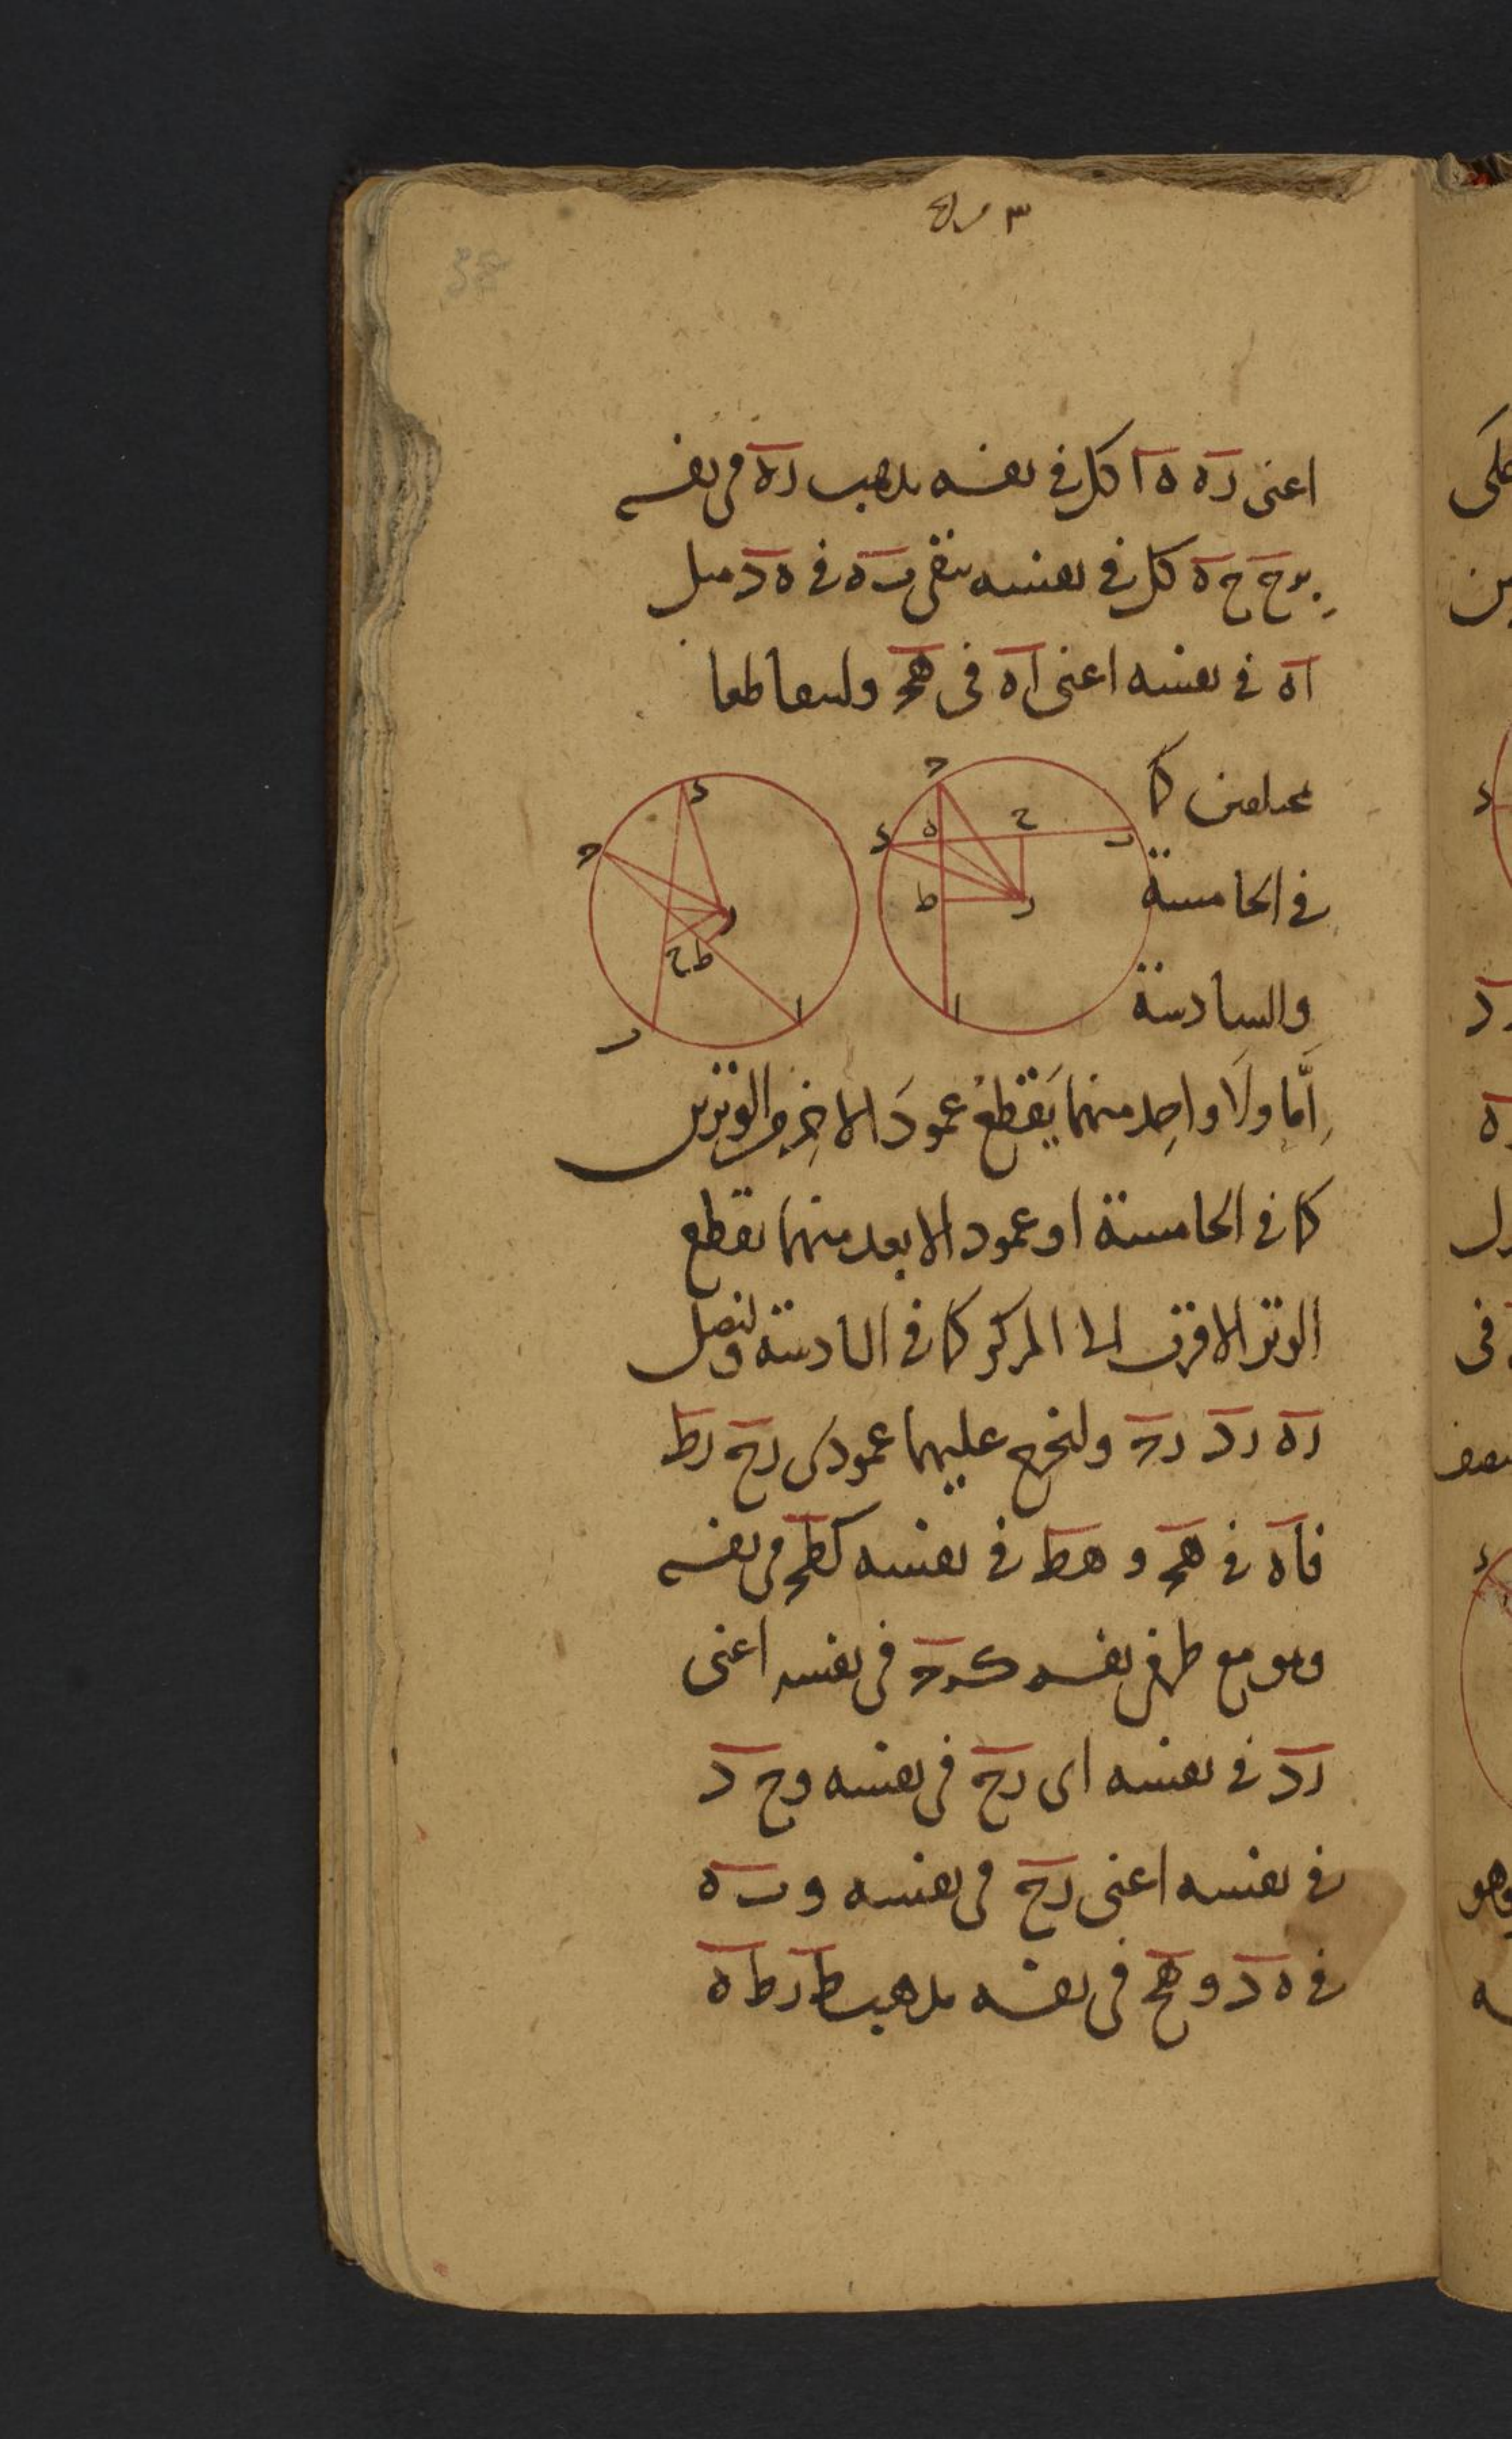 اعنى ره ه ا كل فى نفسه يذهب ره فى نفسه
رح ح ه كل فى نفسه يبقى ب ه فى ه د مثل
اه فى نفسه اعنى اه فى هج وليتقاطعا
مختلفين كما
فى الخامسة
والسادسة
اما ولا واحد منهما يقطع عمود الاخر والوترين
كما فى الخامسة او عمود الابعد منهما يقطع
الوتر الاقرب الى المركز كما فى السادسة ولنصل
ره رد رج ولنخرج عليهما عمودى رح رط
فاه فى هج و هط فى نفسه كطج فى نفسه
وهو مع طر فى نفسه كرج فى نفسه اعنى
رد فى نفسه اى رح فى نفسه وح د
فى نفسه اعنى رح فى نفسه و ب ه
فى ه د و هح فى نفسه يذهب ط ر ط ه
ج
د
ه
ح
ب
ط
ر
ا
د
ج
ر
ح ط
ا
ب